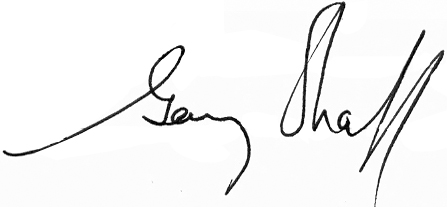 Gary Shaff